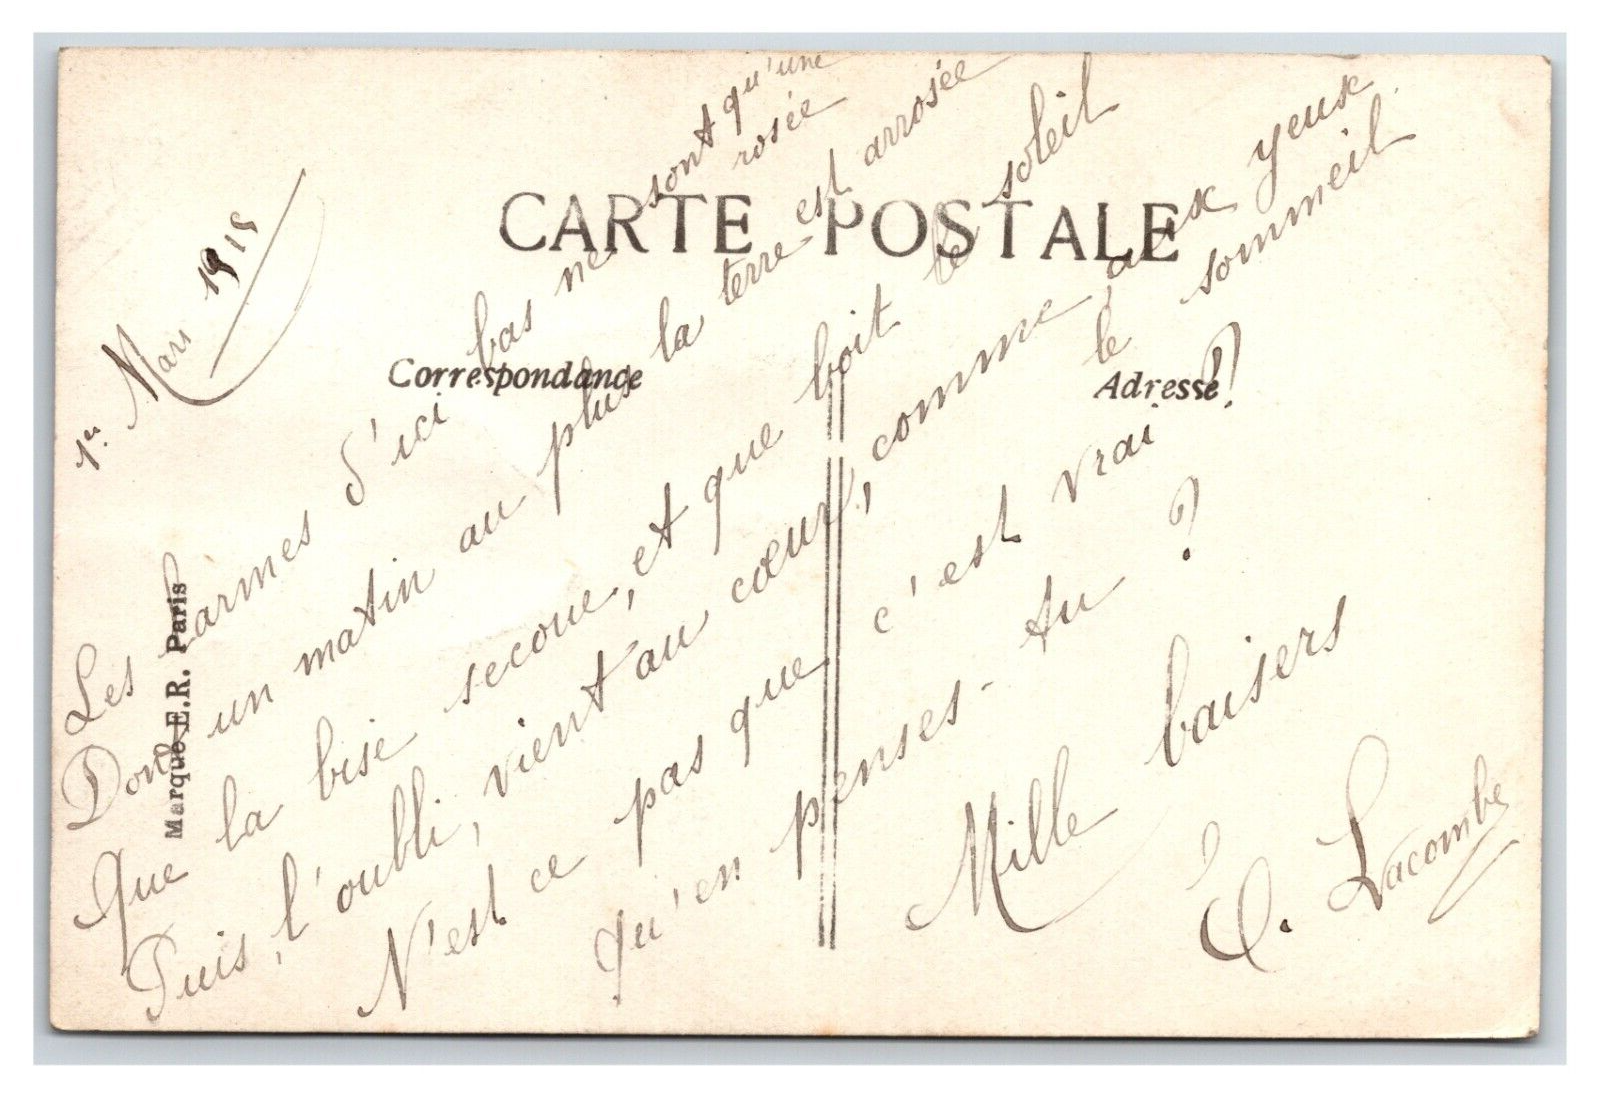 CARTE POSTALE
Correspondance
Adresse
Marque E.R. Paris
1er Mars 1915
Les larmes d'ici bas ne sont qu'une rosée
Dont un matin au plus la terre est arrosée
Que la bise secoue, et que boit le soleil
Puis, l'oubli, vient au cœur, comme aux yeux le sommeil
N'est ce pas que c'est vrai ?
Qu'en penses-tu ?
Mille baisers
Lacombe